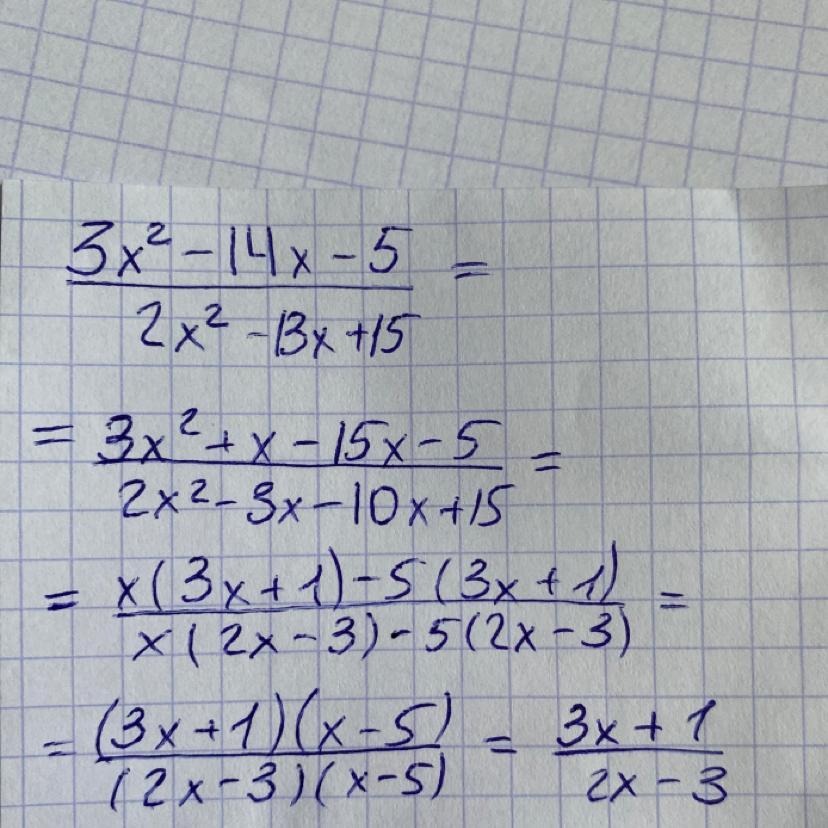 3x² - 14x - 5 =
2x² - 13x + 15
= 3x² + x - 15x - 5 =
2x² - 3x - 10x + 15
= x(3x + 1) - 5(3x + 1) =
x(2x - 3) - 5(2x - 3)
= (3x + 1)(x - 5) = 3x + 1
(2x - 3)(x - 5) 2x - 3